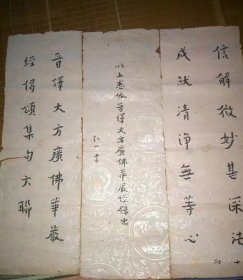 信解微妙甚深法
成就清淨無等心
以上悉依晉譯大方廣佛華嚴經錄出
晉譯大方廣佛華嚴
經偈頌集句六聯